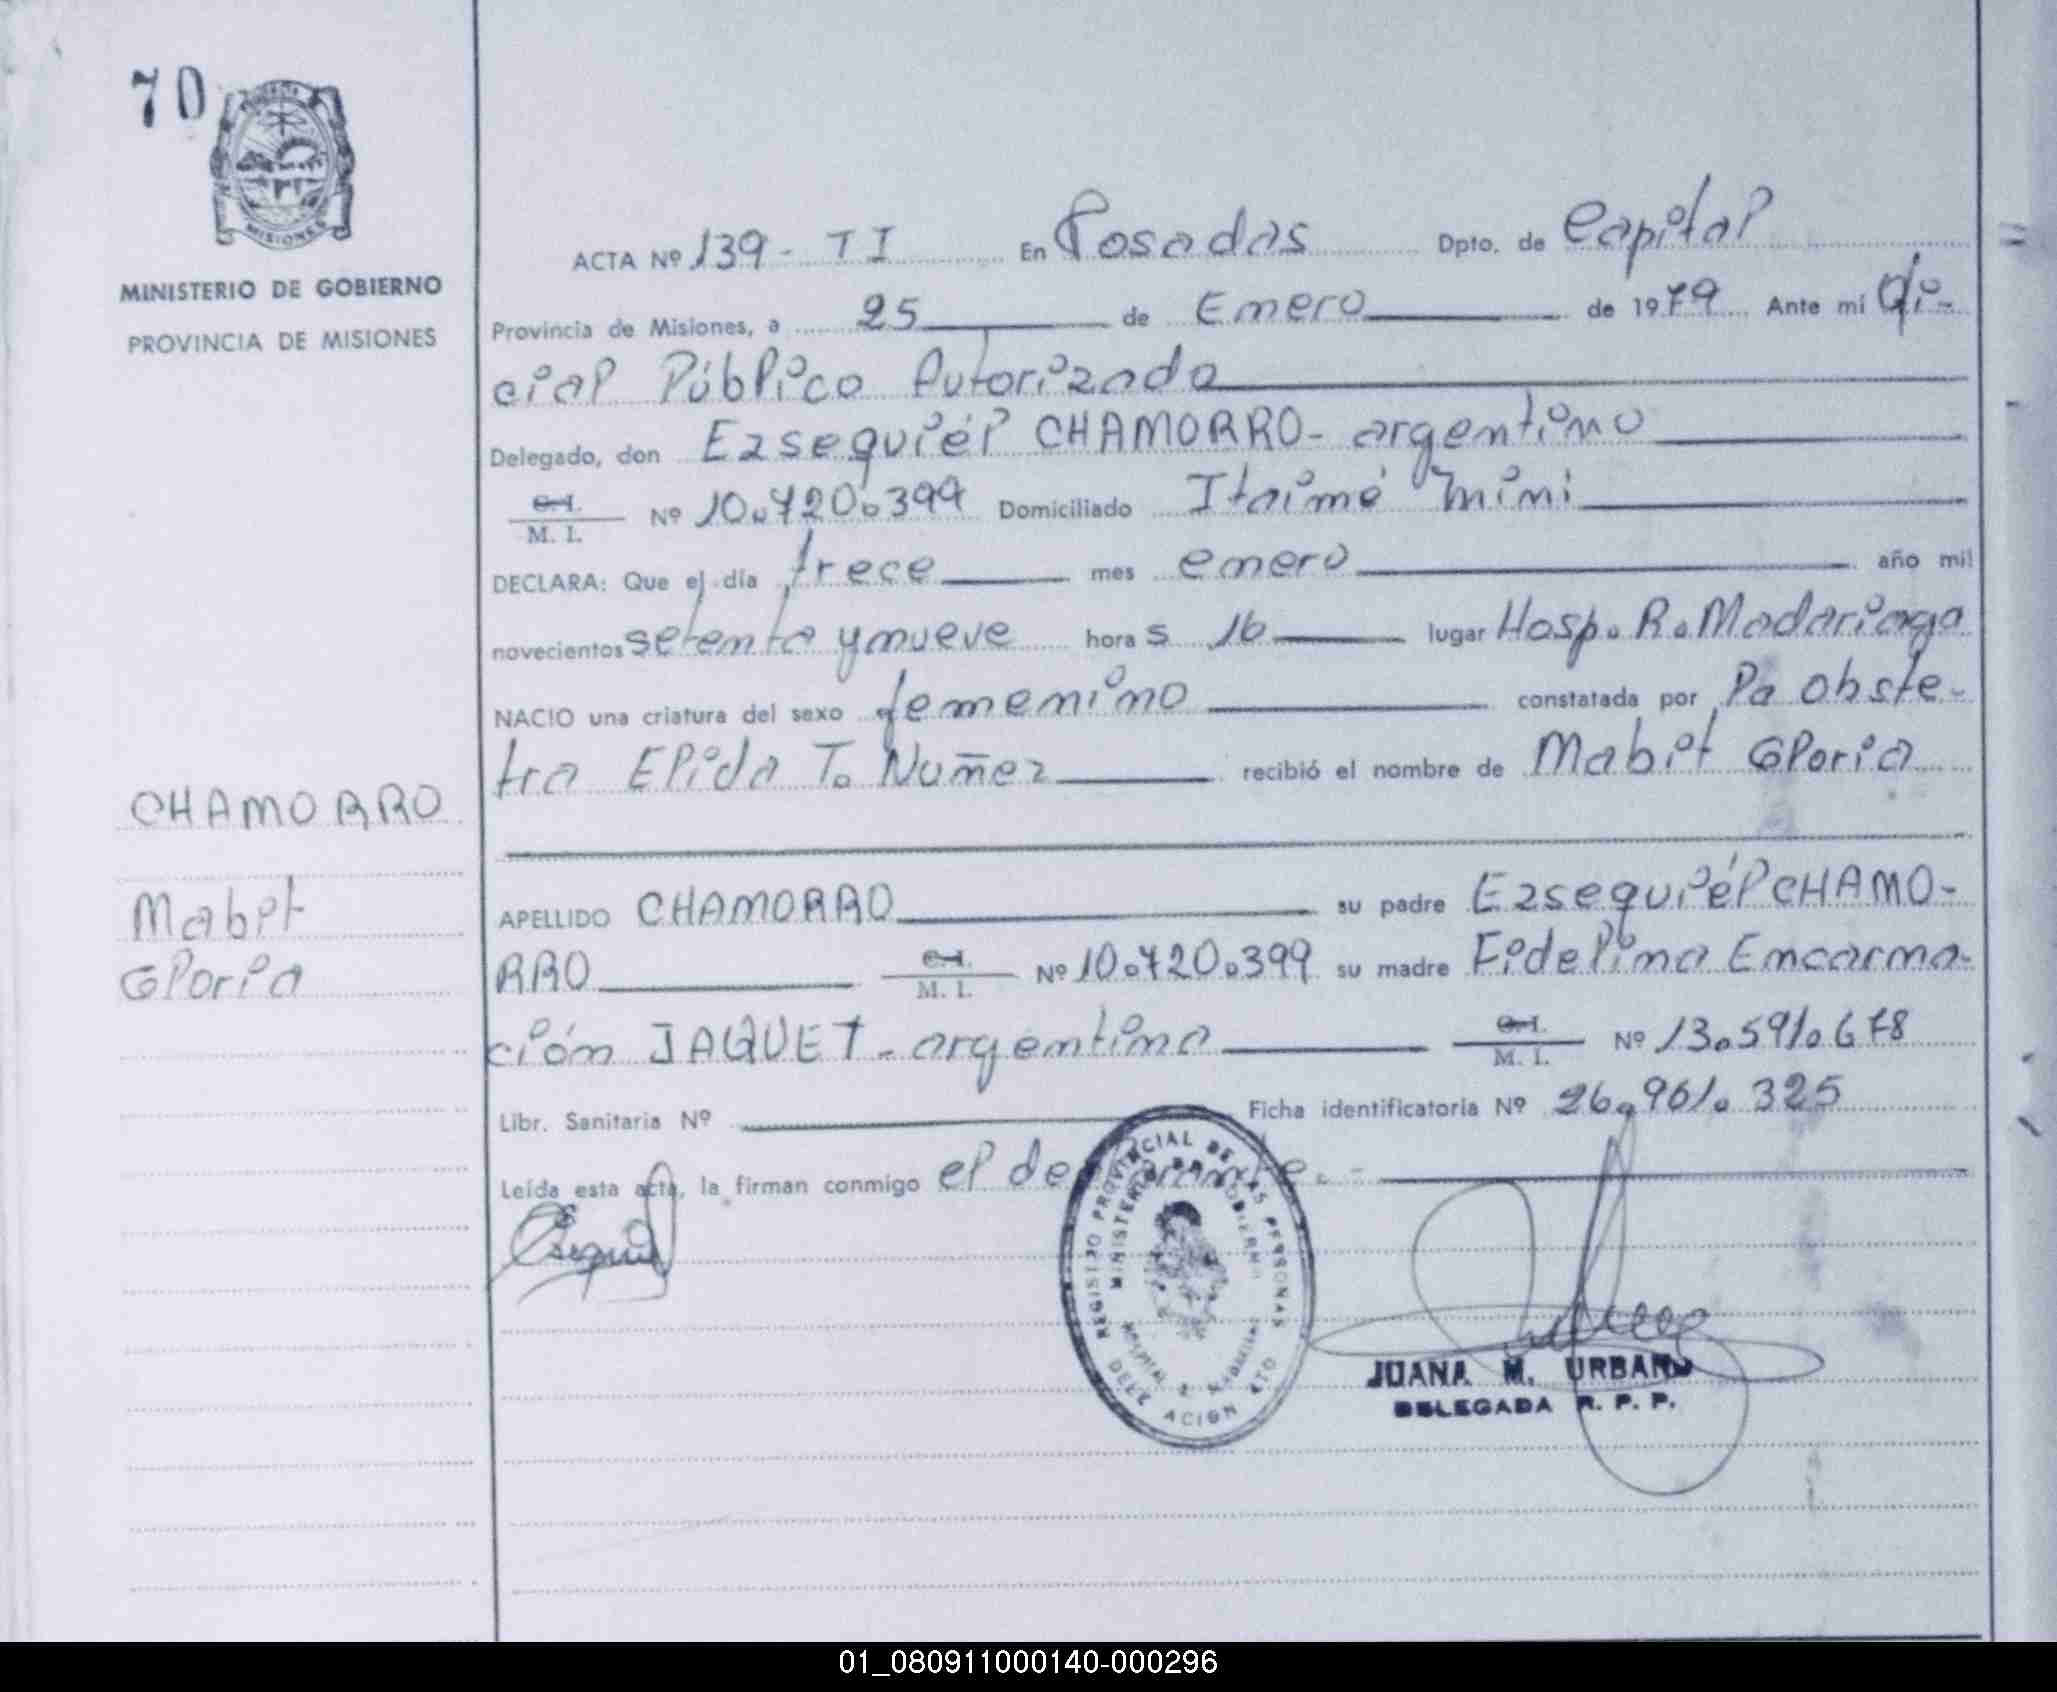 70
MISIONES
MINISTERIO DE GOBIERNO
PROVINCIA DE MISIONES
ACTA Nº 139 - T I En Posadas Dpto. de Capital
Provincia de Misiones, a 25 de Enero de 1979 Ante mi Ofi-
cial Público Autorizada
Delegado, don Ezsequiél CHAMORRO - argentino
C. I. M. I. Nº 10.720.399 Domiciliado Itaimé Mini
DECLARA: Que el día trece mes enero año mil
novecientos setenta y nueve hora s 16 lugar Hosp. R. Madariaga
NACIO una criatura del sexo femenino constatada por la obste-
tra Elida T. Nuñez recibió el nombre de Mabel Gloria
CHAMORRO
Mabel
Gloria
APELLIDO CHAMORRO su padre Ezsequiél CHAMO-
RRO C. I. M. I. Nº 10.720.399 su madre Fidelina Encarna-
ción JAQUET - argentina C. I. M. I. Nº 13.591.678
Libr. Sanitaria Nº Ficha identificatoria Nº 26.961.325
Leída esta acta, la firman conmigo el declarante. -
REGISTRO PROVINCIAL DE LAS PERSONAS
MINISTERIO DE GOBIERNO
JUANA M. URBANO
DELEGADA R. P. P.
01_080911000140-000296